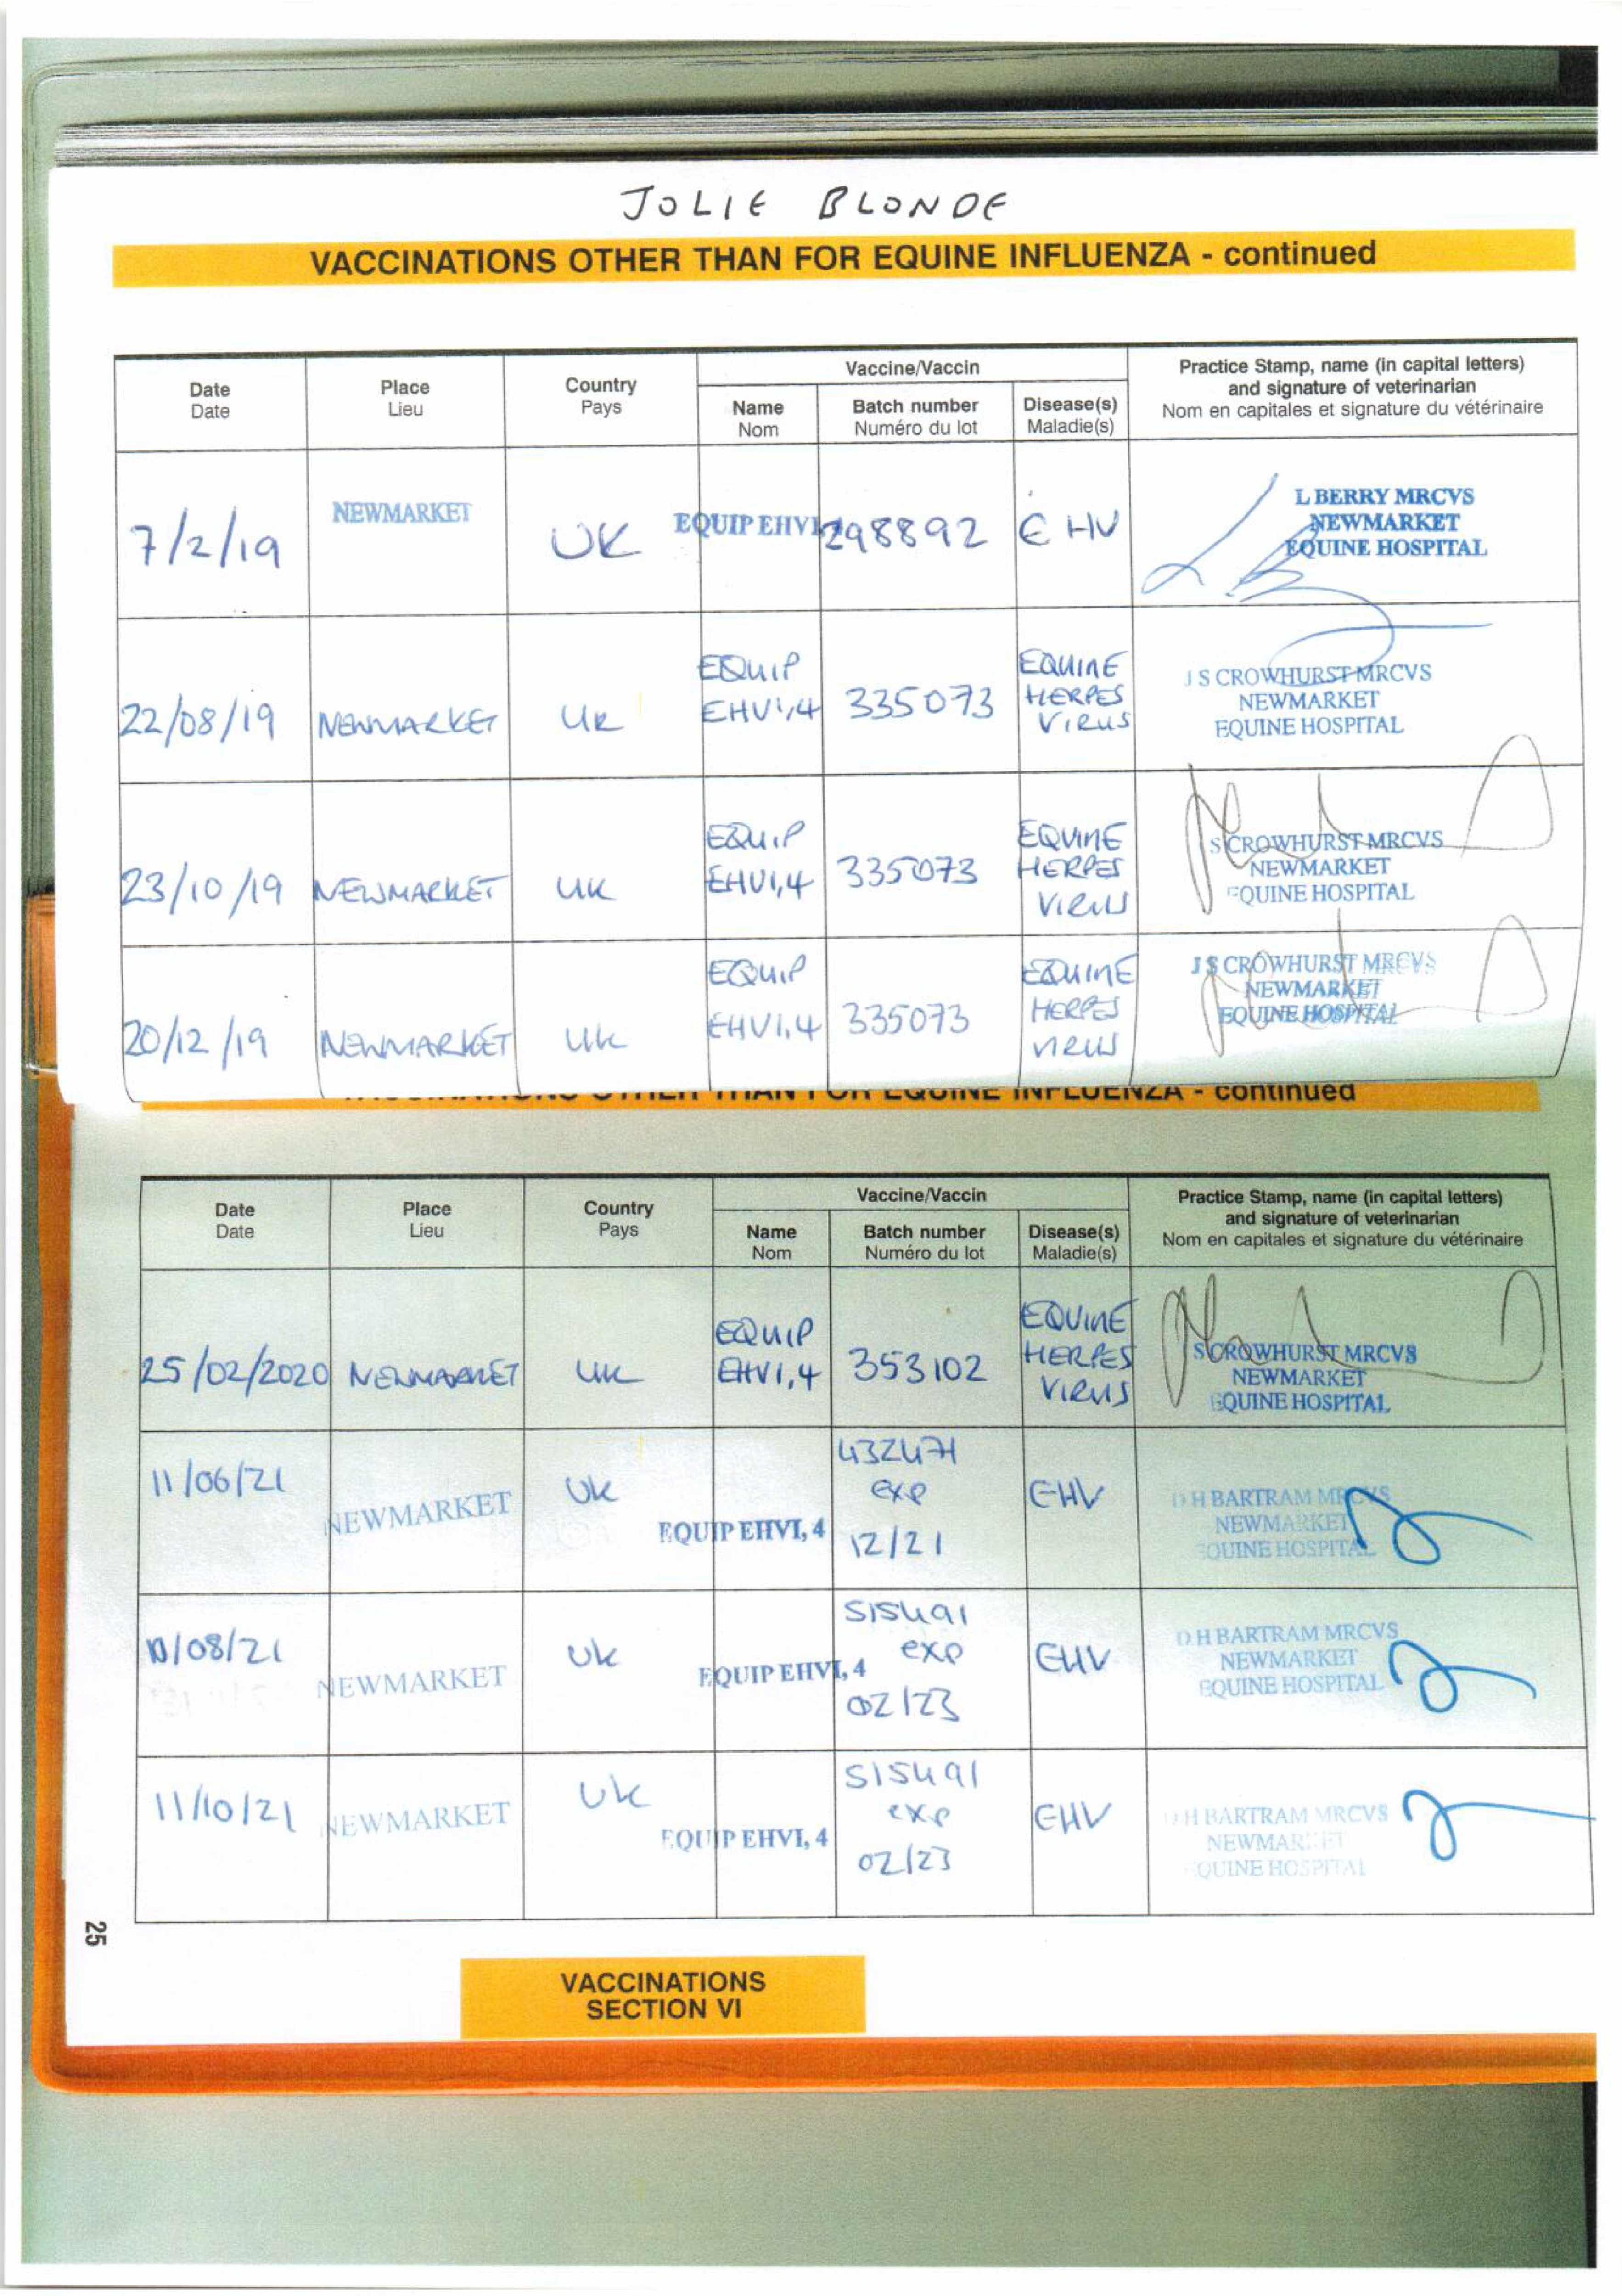 JOLIE BLONDE
VACCINATIONS OTHER THAN FOR EQUINE INFLUENZA - continued
Date
Date
Place
Lieu
Country
Pays
Vaccine/Vaccin
Name
Nom
Batch number
Numéro du lot
Disease(s)
Maladie(s)
Practice Stamp, name (in capital letters)
and signature of veterinarian
Nom en capitales et signature du vétérinaire
7/2/19
NEWMARKET
UK
EQUIP EHV1
298892
EHV
L BERRY MRCVS
NEWMARKET
EQUINE HOSPITAL
22/08/19
NEWMARKET
UK
EQUIP
EHV1,4
335073
EQUINE
HERPES
VIRUS
J S CROWHURST MRCVS
NEWMARKET
EQUINE HOSPITAL
23/10/19
NEWMARKET
UK
EQUIP
EHV1,4
335073
EQUINE
HERPES
VIRUS
S CROWHURST MRCVS
NEWMARKET
EQUINE HOSPITAL
20/12/19
NEWMARKET
UK
EQUIP
EHV1,4
335073
EQUINE
HERPES
VIRUS
J S CROWHURST MRCVS
NEWMARKET
EQUINE HOSPITAL
VACCINATIONS OTHER THAN FOR EQUINE INFLUENZA - continued
Date
Date
Place
Lieu
Country
Pays
Vaccine/Vaccin
Name
Nom
Batch number
Numéro du lot
Disease(s)
Maladie(s)
Practice Stamp, name (in capital letters)
and signature of veterinarian
Nom en capitales et signature du vétérinaire
25/02/2020
NEWMARKET
UK
EQUIP
EHV1,4
353102
EQUINE
HERPES
VIRUS
S CROWHURST MRCVS
NEWMARKET
EQUINE HOSPITAL
11/06/21
NEWMARKET
UK
EQUIP EHV1, 4
432471
exp
12/21
EHV
D H BARTRAM MRCVS
NEWMARKET
EQUINE HOSPITAL
/08/21
NEWMARKET
UK
EQUIP EHV1, 4
515491
exp
02/23
EHV
D H BARTRAM MRCVS
NEWMARKET
EQUINE HOSPITAL
11/10/21
NEWMARKET
UK
EQUIP EHV1, 4
515491
exp
02/23
EHV
D H BARTRAM MRCVS
NEWMARKET
EQUINE HOSPITAL
25
VACCINATIONS
SECTION VI